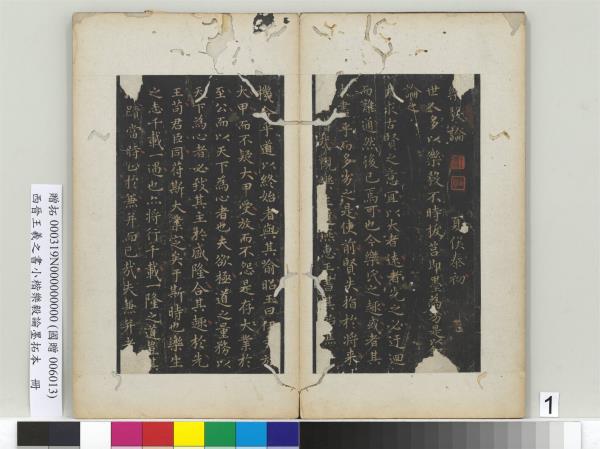 樂毅論
夏侯泰初
世人多以樂毅不時拔莒即墨為劣是以
論之
求古賢之意宜以大者遠者先之必迂迴
而難通然後已焉可也今樂氏之趣或者其
而多劣之是使前賢失指於將來
機合乎道以終始者與其喻昭王曰伊
大甲而不疑大甲受放而不怨是存大業於
至公而以天下為心者也夫欲極道之量務以
天下為心者必致其主於盛隆合其趣於先
王苟君臣同符斯大業定矣于斯時也樂生
之志千載一遇也亦將行千載一隆之道
當時止於兼并而已哉夫兼并者
贈拓 000319N000000000 (國贈 006013)
西晉王羲之書小楷樂毅論墨拓本 冊
1